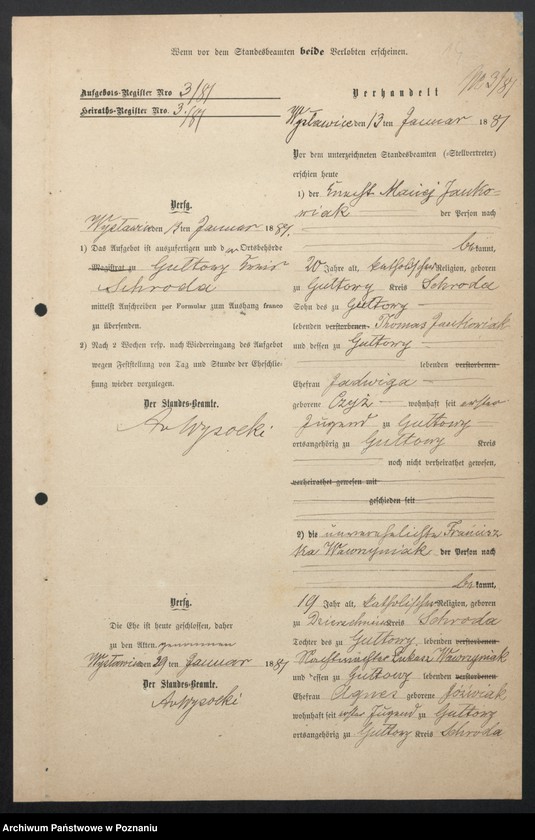 Wenn vor dem Standesbeamten beide Verlobten erscheinen.
Aufgebots-Register Nro 3/81
Heiraths-Register Nro. 3/81
Verfg.
Wysławice den 13 ten Januar 1881.
1) Das Aufgebot ist auszufertigen und d er Ortsbehörde
Magistrat zu Gultowy Kreis
Schroda
mittelst Anschreiben per Formular zum Aushang franco
zu übersenden.
2) Nach 2 Wochen resp. nach Wiedereingang des Aufgebot
wegen Feststellung von Tag und Stunde der Eheschlie-
ßung wieder vorzulegen.
Der Standes-Beamte.
Wysocki
Verfg.
Die Ehe ist heute geschlossen, daher
zu den Akten genommen
Wysławice den 29 ten Januar 1881
Der Standes-Beamte.
Wysocki
No 3/81
Verhandelt
Wysławice den 13 ten Januar 1881
Vor dem unterzeichneten Standesbeamten (-Stellvertreter)
erschien heute
1) der Knecht Maciej Janko-
wiak der Person nach
bekannt,
20 Jahre alt, katholischer Religion, geboren
zu Gultowy Kreis Schroda
Sohn des zu Gultowy
lebenden verstorbenen Thomas Jankowiak
und dessen zu Gultowy
lebenden verstorbenen
Ehefrau Jadwiga
geborene Czyż wohnhaft seit erster
Jugend zu Gultowy
ortsangehörig zu Gultowy Kreis
noch nicht verheirathet gewesen,
verheirathet gewesen mit
geschieden seit
2) die unverehelichte Francisz
ka Wawrzyniak der Person nach
bekannt,
19 Jahr alt, katholischer Religion, geboren
zu Kreis Schroda
Tochter des zu Gultowy lebenden verstorbenen
Nachtwächter Lukas Wawrzyniak
und dessen zu Gultowy lebenden verstorbenen
Ehefrau Agnes geborene Jóźwiak
wohnhaft seit erster Jugend zu Gultowy
ortsangehörig zu Gultowy Kreis Schroda
Archiwum Państwowe w Poznaniu